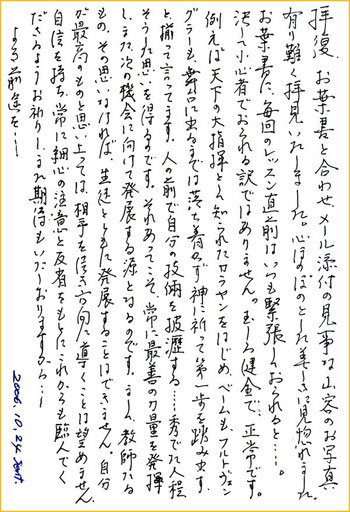 拝復、お葉書と合わせメール添付の見事な山容のお写真
有り難く拝見いたしました。心ほのぼのとした美しさに見惚れました。
お葉書に、毎回のレッスン直前はいつも緊張しておられると‥‥。
決して小心者でおられる訳ではありません。むしろ健全で、正常です。
例えば天下の大指揮者と知られたカラヤンをはじめ、ベームも、フルトヴェン
グラーも、舞台に出るまでは落ち着かず神に祈って第一歩を踏み出す、
と揃って言ってます。人の前で自分の技倆を披歴する‥‥秀でた人程
そうした思いを得るのです。それあってこそ、常に最善の力量を発揮
し、また次の機会に向けて発展する源となるのです。ましてや、教師たる
もの、その思いなければ、生徒とともに発展することはできません。自分
が最高のものと思い上っては、相手を良き方向に導くことは望めません。
自信を持ち、常に細心の注意と反省をもとにこれからも臨んでく
ださるようお祈りしまた期待もいたしおりますから‥‥!
よき前途を‥‥!
2006.10.24